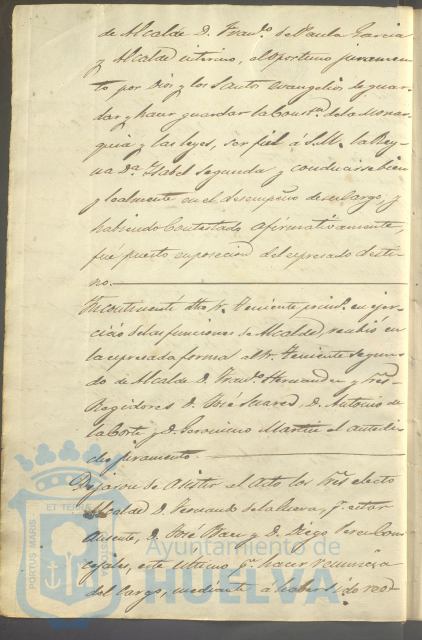 de Alcalde D. Franco. de Paula Garcia
y Alcalde interino, el oportuno juramen-
to por Dios y los Santos evangelios de guar-
dar y hacer guardar la Constn. de la Monar-
quia y las leyes, ser fiel á S.M. la Rey-
na Da. Isabel segunda y conducirse bien
y lealmente en el desempeño de su cargo, y
habiendo Contestado afirmativamente,
fué puesto en posecion del espresado desti-
no.
Incontinente dho Sr. Teniente primo. en ejer-
cicio de las funciones de Alcalde, recibió en
la espresada forma al Sr. Teniente segun-
do de Alcalde D. Franco. Hernandez y Sres.
Regidores D. José Suarez, D. Antonio de
la Corte y D. Geronimo Martin el antedi-
cho juramento.
Dejaron de Asistir al Acto los Sres electo
Alcalde D. Fernando de la Cueva, pr. estar
Ausente, D. José Baez y D. Diego Perez Con-
cejales, este ultimo pr. hacer renuncia
del cargo, mediante á haber sido reel-
PORTUS MARIS
ET TERRÆ
CUSTODIA
Ayuntamiento de
HUELVA